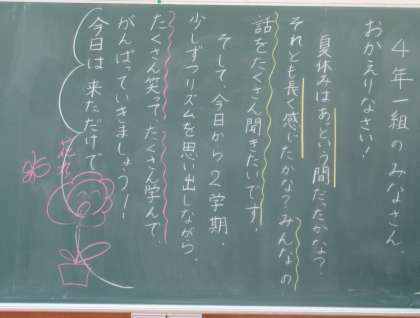 4年一組のみなさん、
おかえりなさい!
夏休みはあっという間だったかな?
それとも長く感じたかな?みんなの
話をたくさん聞きたいです。
そして、今日から2学期。
少しずつリズムを思い出しながら、
たくさん笑って、たくさん学んで、
がんばっていきましょう!
今日は来ただけで